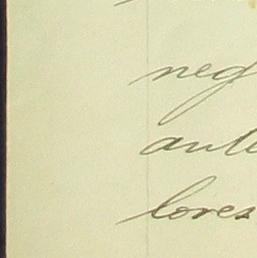 neg
ante
lores